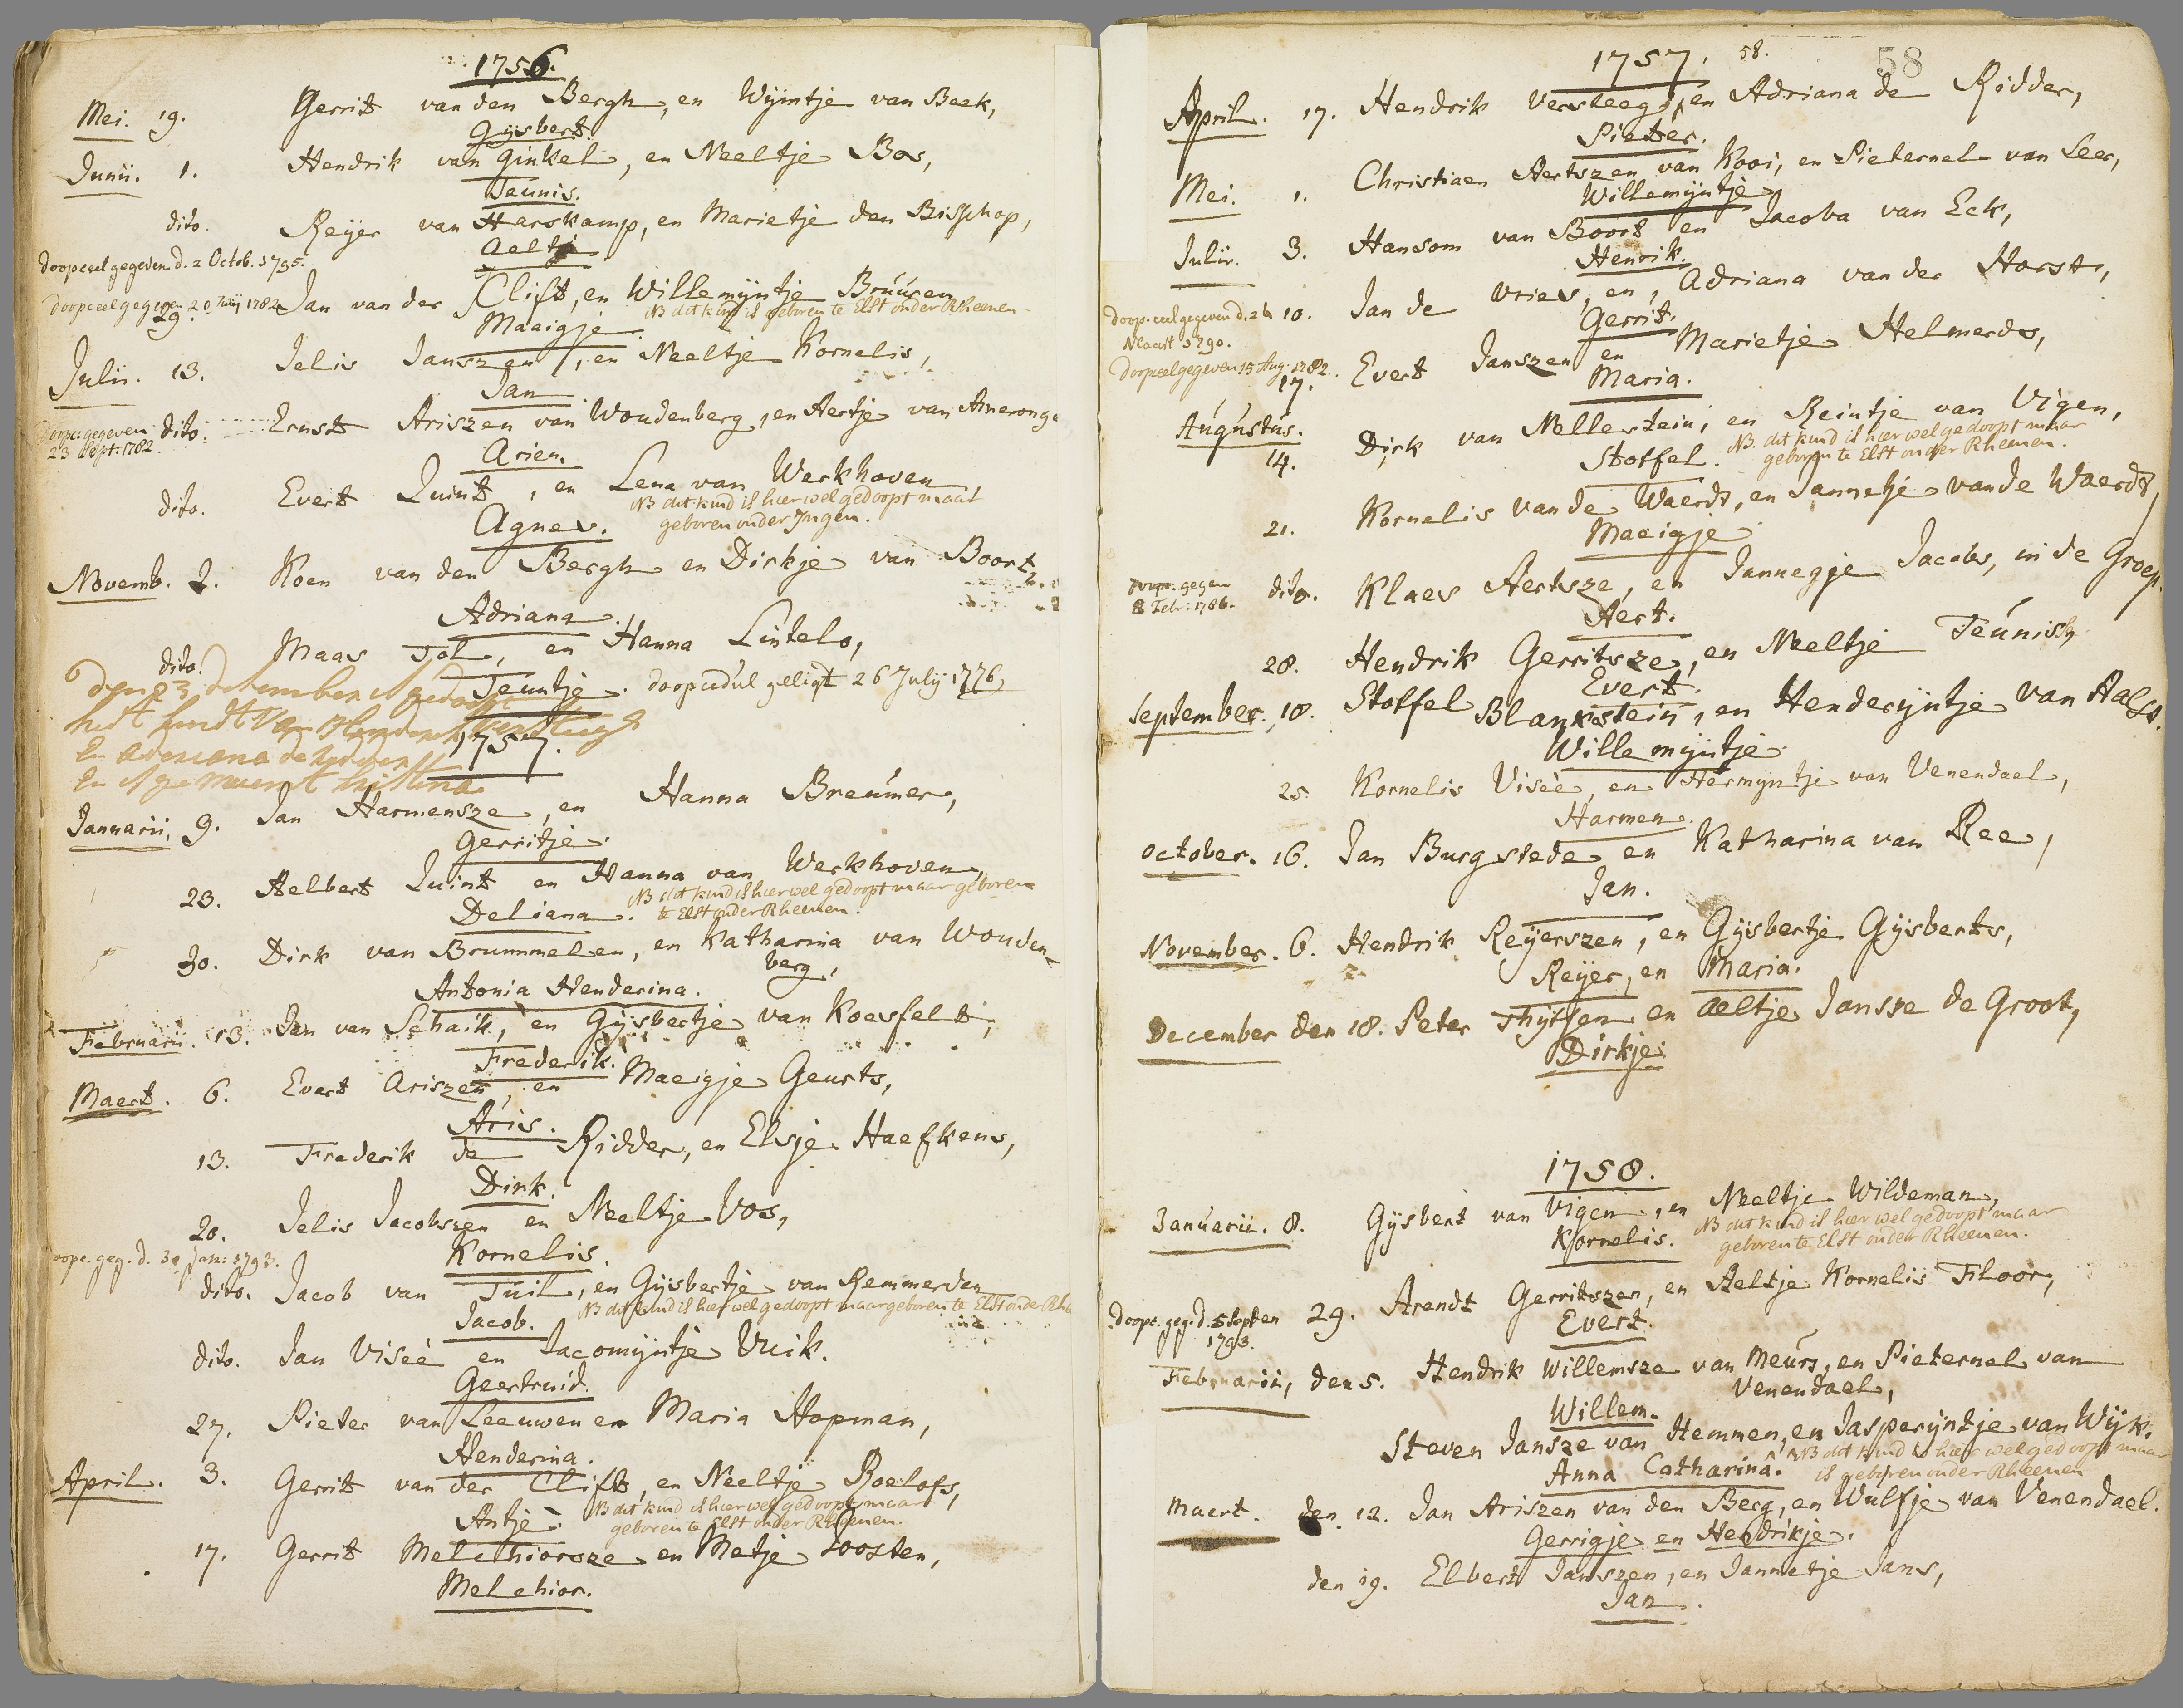 1756.
Mei. 19. Gerrit van den Bergh, en Wijmtje van Beek,
Gijsbert.
Junii. 1. Hendrik van Ginkel, en Neeltje Bos,
Teunis.
dito. Reijer van Harskamp, en Marietje den Bisschop,
Aeltje
doopceel gegeven d. 2 Octob. 1795.
doopceel gegeven 20 Juij 1782
29. Jan van der Clift, en Willemijntje Bruúren
NB dit kind is geboren te Elst onder Rheenen
Maaigje
Julii. 13. Jelis Janszen, en Neeltje Kornelis,
Jan
Doopc: gegeven 23 Sept: 1782.
dito. Ernst Ariszen van Woudenberg, en Aertje van Ameronge
Arien.
dito. Evert Quint, en Lena van Werkhoven,
NB dit kind is hier wel gedoopt maar
geboren onder Ingen.
Agnes.
Novemb. 2. Koen van den Bergh en Dirkje van Boort,
Adriana.
dito. Maas Tol, en Hanna Lintelo,
Teuntje. doopcedul geligt 26 July 1776,
den 23 desember is gedoopt
het kindt van Henderick versteegh
En adereiana de ridder
En is genaemt kristina
1757.
Januarii. 9. Jan Harmensze, en Hanna Breúmer,
Gerritje.
23. Aelbert Quint en Hanna van Werkhoven,
NB dit kind is hier wel gedoopt maar geboren
te Elst onder Rheenen.
Deliana.
30. Dirk van Brummelen, en Katharina van Wouden-
berg,
Antonia Henderina.
Februarii. 13. Jan van Schaik, en Gijsbertje van Koesfelt,
Frederik.
Maert. 6. Evert Ariszen, en Maeigje Geurts,
Aris.
13. Frederik de Ridder, en Elsje Haefkens,
Dirk.
20. Jelis Jacobszen en Neeltje Vos,
Kornelis.
doopc. geg. d. 30 Jan: 1793.
dito. Jacob van Tuil, en Gijsbertje van Remmerden
NB dit kind is hier wel gedoopt maar geboren te Elst onder Rhe
Jacob.
dito. Jan Viseè en Jacomijntje Vuik.
Geertruid.
27. Pieter van Leeuwen en Maria Hopman,
Henderina.
April. 3. Gerrit van der Clift, en Neeltje Roelofs,
NB dit kind is hier wel gedoopt maar
geboren te Elst onder Rheenen.
Antje.
17. Gerrit Melchiorsze en Metje Joosten,
Melchior.
1757. 58.
58
April. 17. Hendrik Versteeg, en Adriana de Ridder,
Pieter.
Mei. 1. Christiaen Aertszen van Kooi, en Pieternel van Leer,
Willemijntje
Julii. 3. Hansom van Boort en Jacoba van Eck,
Henrik.
doop-ceel gegeven d. 26
Maart 1790.
10. Jan de Vries, en, Adriana van der Horst,
Gerrit.
doopceel gegeven 15 Aug: 1782.
17. Evert Janszen en Marietje Helmerds,
Maria.
Augústús.
14. Dirk van Mellestein, en Reintje van Vigen,
NB. dit kind is hier wel gedoopt maar
geboren te Elst onder Rheenen.
Stoffel.
21. Kornelis van de Waerdt, en Jannetje van de Waerdt,
Maeigje
doopc. gegeven
8 Febr: 1786.
dito. Klaes Aertsze, en Jannegje Jacobs, in de Groep.
Aert.
28. Hendrik Gerritsze, en Neeltje Teúnisse
Evert.
September. 18. Stoffel Blankstein, en Henderijntje van Aalst.
Willemijntje
25. Kornelis Viseè, en Hermijntje van Venendael,
Harmen.
October. 16. Jan Burgstede en Katharina van Ree,
Jan.
November. 6. Hendrik Reijerszen, en Gijsbertje Gijsberts,
Reijer, en Maria.
December den 18. Peter Thijssen en Aeltje Jansze de Groot,
Dirkje
1758.
Januarii. 8. Gijsbert van Vigen, en Neeltje Wildeman,
NB dit kind is hier wel gedoopt maar
geboren te Elst onder Rheenen.
Kornelis.
Doopc. geg. d. 5 Septen
1793.
29. Arendt Gerritszen, en Aeltje Kornelis Floor,
Evert.
Februarii, den 5. Hendrik Willemsze van Meúrs, en Pieternel van
Venendael,
Willem.
Steven Jansze van Hemmen, en Jasperijntje van Wijk.
NB dit kind is hier wel gedoopt maar
is geboren onder Rheenen
Anna Catharina.
Maert. den 12. Jan Ariszen van den Berg, en Wulfje van Venendael.
Gerrigje en Hendrikje.
den 19. Elbert Janszen, en Jannetje Jans,
Jan.